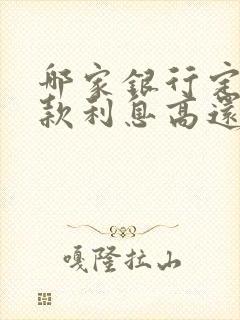 那家銀行定
款利息高還
嘎隆拉山